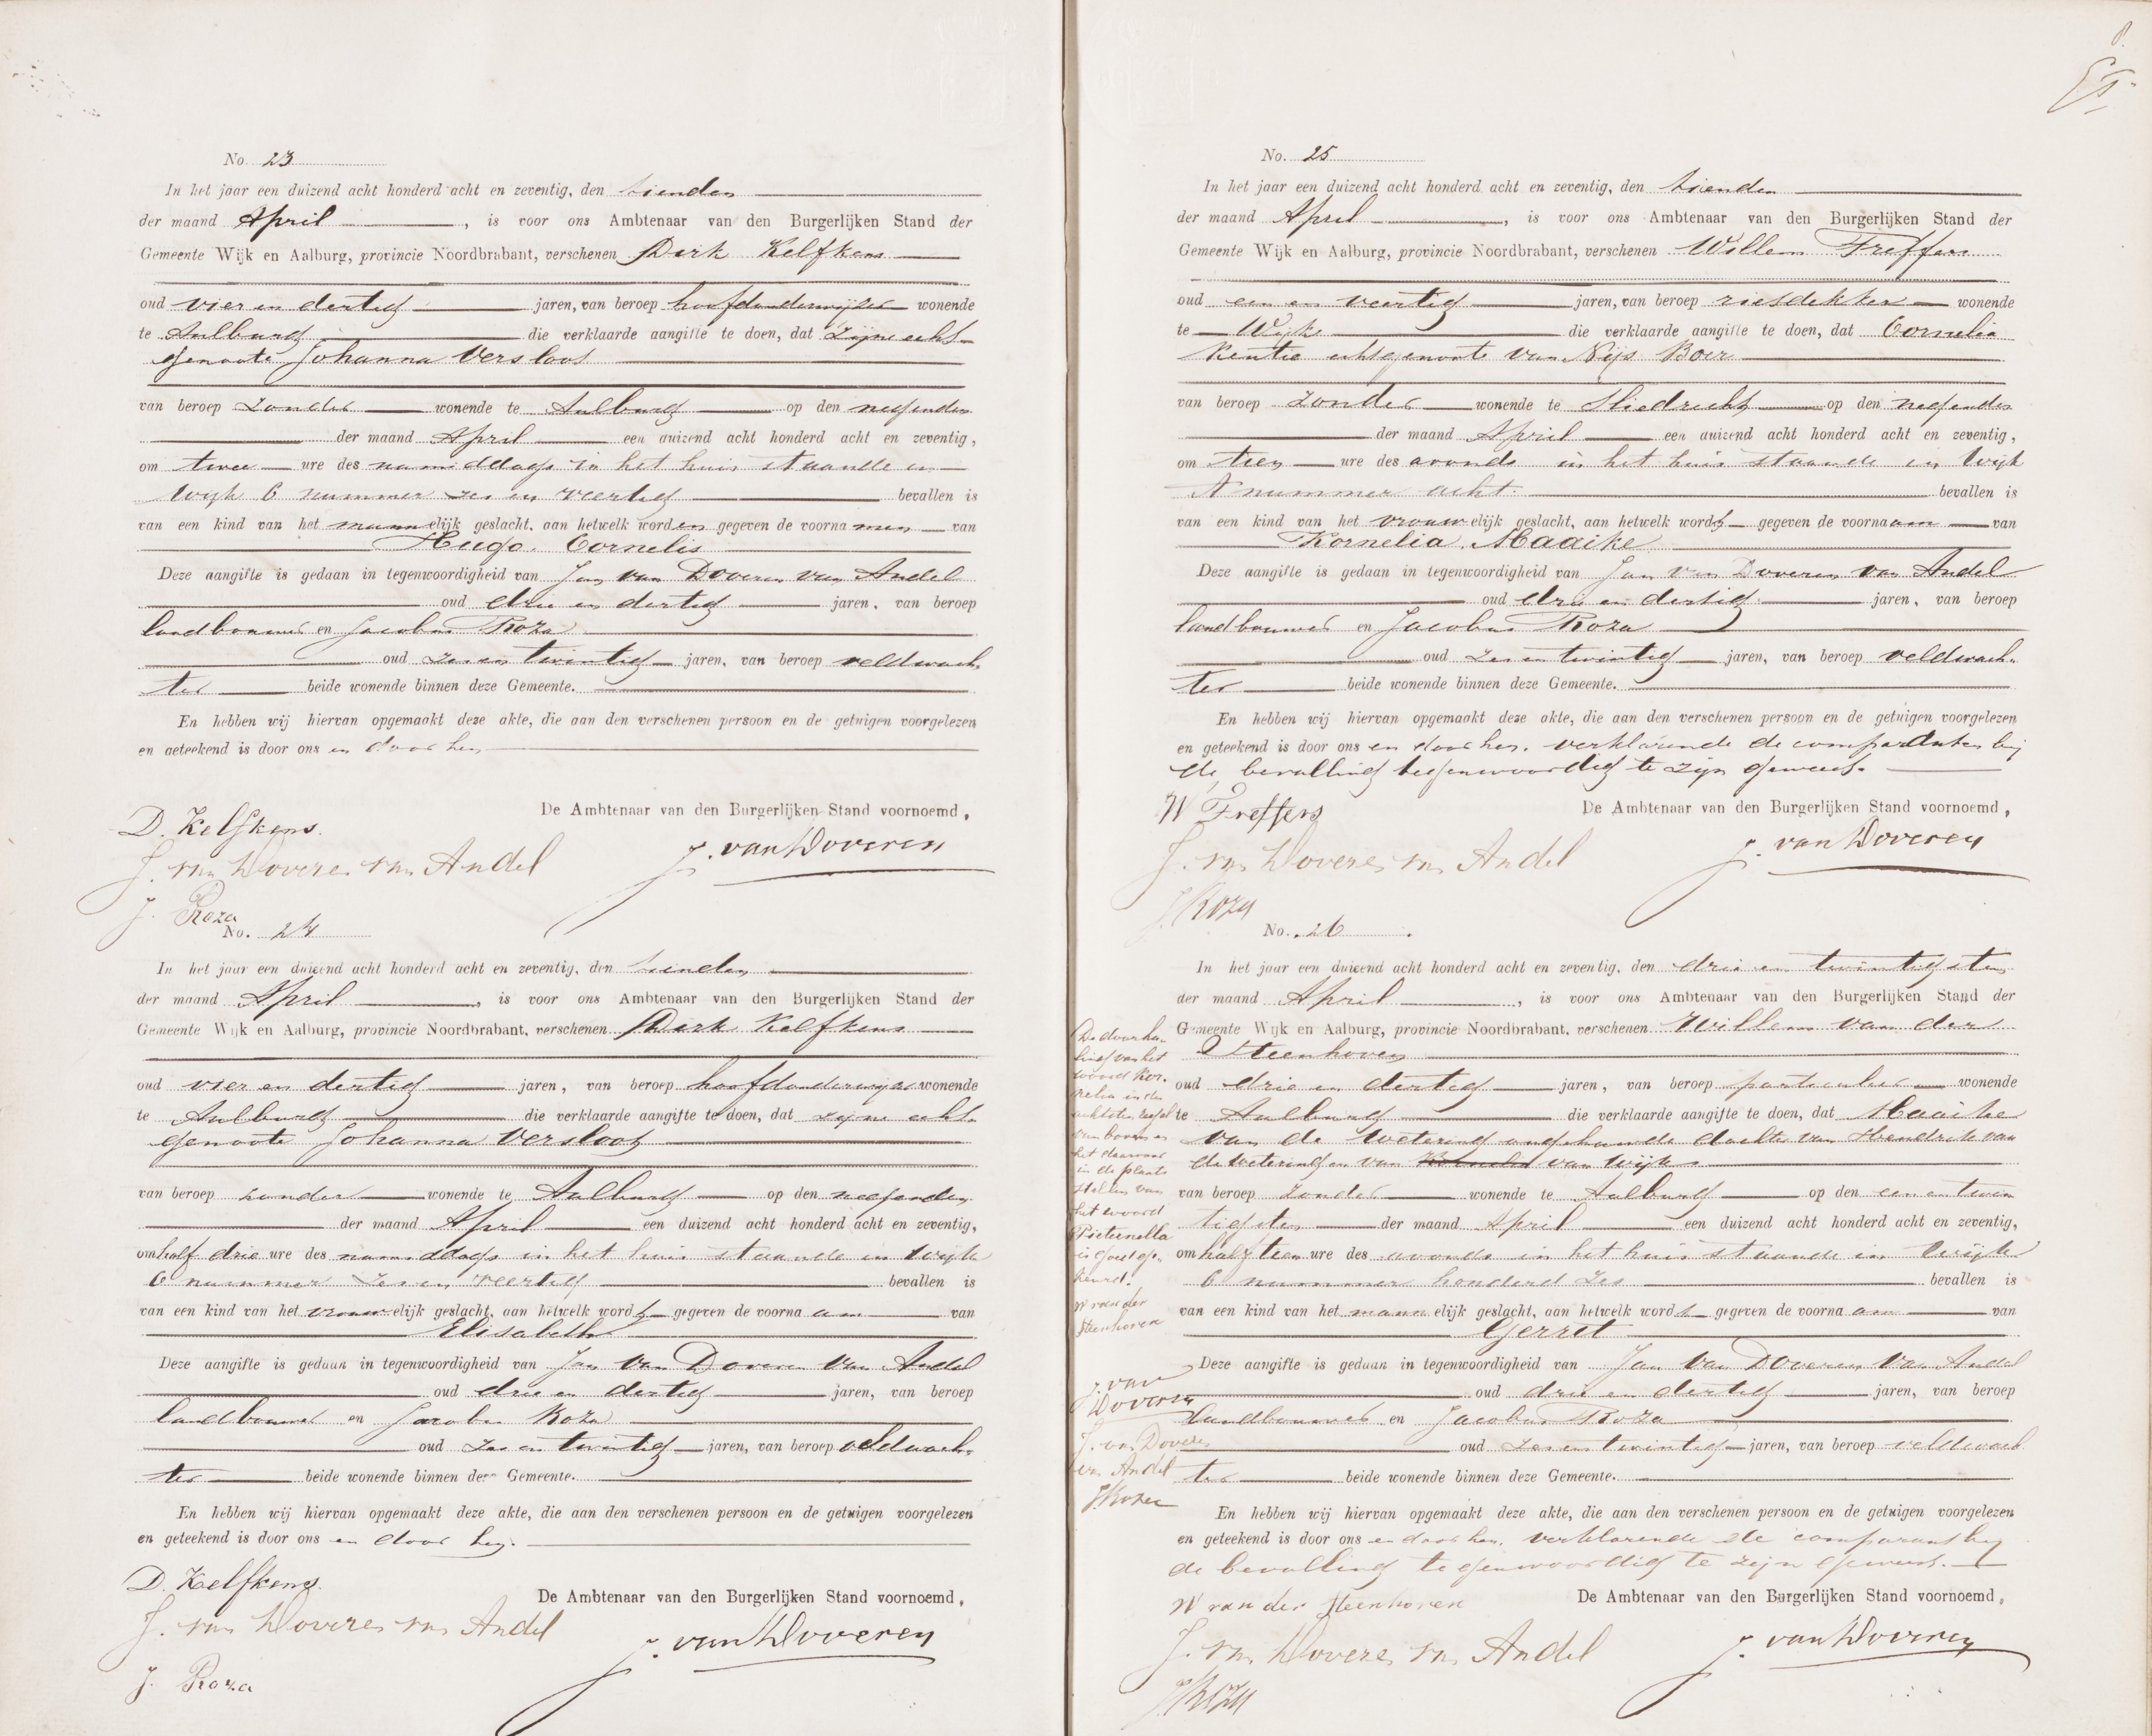 No. 23
In het jaar een duizend acht honderd acht en zeventig, den tienden
der maand April, is voor ons Ambtenaar van den Burgerlijken Stand der
Gemeente Wijk en Aalburg, provincie Noordbrabant, verschenen Dirk Kelfkens
oud vier en dertig jaren, van beroep hoofdonderwijzer wonende
te Aalburg die verklaarde aangifte te doen, dat zijne echt-
genoote Johanna Versloot
van beroep zonder wonende te Aalburg op den negenden
der maand April een duizend acht honderd acht en zeventig,
om twee ure des namiddags in het huis staande in
Wijk C nummer zes en veertig bevallen is
van een kind van het mannelijk geslacht, aan hetwelk worden gegeven de voornamen van
Hugo Cornelis
Deze aangifte is gedaan in tegenwoordigheid van Jan van Doveren van Andel
oud drie en dertig jaren, van beroep
landbouwer en Jacobus Roza
oud zes en twintig jaren, van beroep veldwach-
ter beide wonende binnen deze Gemeente.
En hebben wij hiervan opgemaakt deze akte, die aan den verschenen persoon en de getuigen voorgelezen
en geteekend is door ons en door hen
De Ambtenaar van den Burgerlijken Stand voornoemd,
D. Kelfkens
J. van Doveren
J. van Doveren van Andel
J. Roza
No. 24
In het jaar een duizend acht honderd acht en zeventig, den tienden
der maand April, is voor ons Ambtenaar van den Burgerlijken Stand der
Gemeente Wijk en Aalburg, provincie Noordbrabant, verschenen Dirk Kelfkens
oud vier en dertig jaren, van beroep hoofdonderwijzer wonende
te Aalburg die verklaarde aangifte te doen, dat zijne echt-
genoote Johanna Versloot
van beroep zonder wonende te Aalburg op den negenden
der maand April een duizend acht honderd acht en zeventig,
om half drie ure des namiddags in het huis staande in Wijk
C nummer zes en veertig bevallen is
van een kind van het vrouwelijk geslacht, aan hetwelk wordt gegeven de voornaam van
Elisabeth
Deze aangifte is gedaan in tegenwoordigheid van Jan van Doveren van Andel
oud drie en dertig jaren, van beroep
landbouwer en Jacobus Roza
oud zes en twintig jaren, van beroep veldwach-
ter beide wonende binnen deze Gemeente.
En hebben wij hiervan opgemaakt deze akte, die aan den verschenen persoon en de getuigen voorgelezen
en geteekend is door ons en door hen.
D. Kelfkens
De Ambtenaar van den Burgerlijken Stand voornoemd,
J. van Doveren van Andel
J. van Doveren
J. Roza
No. 25
In het jaar een duizend acht honderd acht en zeventig, den tienden
der maand April, is voor ons Ambtenaar van den Burgerlijken Stand der
Gemeente Wijk en Aalburg, provincie Noordbrabant, verschenen Willem Treffers
oud een en veertig jaren, van beroep rietdekker wonende
te Wijk die verklaarde aangifte te doen, dat Cornelia
Kentie echtgenoote van Nijs Boer
van beroep zonder wonende te Sliedrecht op den negenden
der maand April een duizend acht honderd acht en zeventig,
om tien ure des avonds in het huis staande in Wijk
A nummer acht. bevallen is
van een kind van het vrouwelijk geslacht, aan hetwelk wordt gegeven de voornaam van
Kornelia Maaike
Deze aangifte is gedaan in tegenwoordigheid van Jan van Doveren van Andel
oud drie en dertig jaren, van beroep
landbouwer en Jacobus Roza
oud zes en twintig jaren, van beroep veldwach-
ter beide wonende binnen deze Gemeente.
En hebben wij hiervan opgemaakt deze akte, die aan den verschenen persoon en de getuigen voorgelezen
en geteekend is door ons en door hen. verklarende de comparanten bij
de bevalling tegenwoordig te zijn geweest.
W Treffers
De Ambtenaar van den Burgerlijken Stand voornoemd,
J. van Doveren
J. van Doveren van Andel
J Roza
No. 26
In het jaar een duizend acht honderd acht en zeventig, den drie en twintigsten
der maand April, is voor ons Ambtenaar van den Burgerlijken Stand der
Gemeente Wijk en Aalburg, provincie Noordbrabant, verschenen Willem van der
Steenhoven
oud drie en dertig jaren, van beroep particulier wonende
te Aalburg die verklaarde aangifte te doen, dat Maaike
van de Wetering ongehuwde dochter van Hendrik van
de Wetering en van van Wijk
van beroep zonder wonende te Aalburg op den een en twin
tigsten der maand April een duizend acht honderd acht en zeventig,
om half tien ure des avonds in het huis staande in Wijk
C nummer honderd zes bevallen is
van een kind van het mannelijk geslacht, aan hetwelk wordt gegeven de voornaam van
Gerret
Deze aangifte is gedaan in tegenwoordigheid van Jan van Doveren van Andel
oud drie en dertig jaren, van beroep
landbouwer en Jacobus Roza
oud zes en twintig jaren, van beroep veldwach
ter beide wonende binnen deze Gemeente.
En hebben wij hiervan opgemaakt deze akte, die aan den verschenen persoon en de getuigen voorgelezen
en geteekend is door ons en door hen, verklarende de comparant bij
de bevalling tegenwoordig te zijn geweest.
W van der Steenhoven
De Ambtenaar van den Burgerlijken Stand voornoemd,
J. van Doveren van Andel
J. van Doveren
J Roza
De doorha-
ling van het
woord Kor-
nelia in den
achtsten regel
van boven en
het daarvoor
in de plaats
stellen van
het woord
Pieternella
is goedge-
keurd.
W van der
Steenhoven
J. van
Doveren
J. van Doveren
van Andel
J Roza